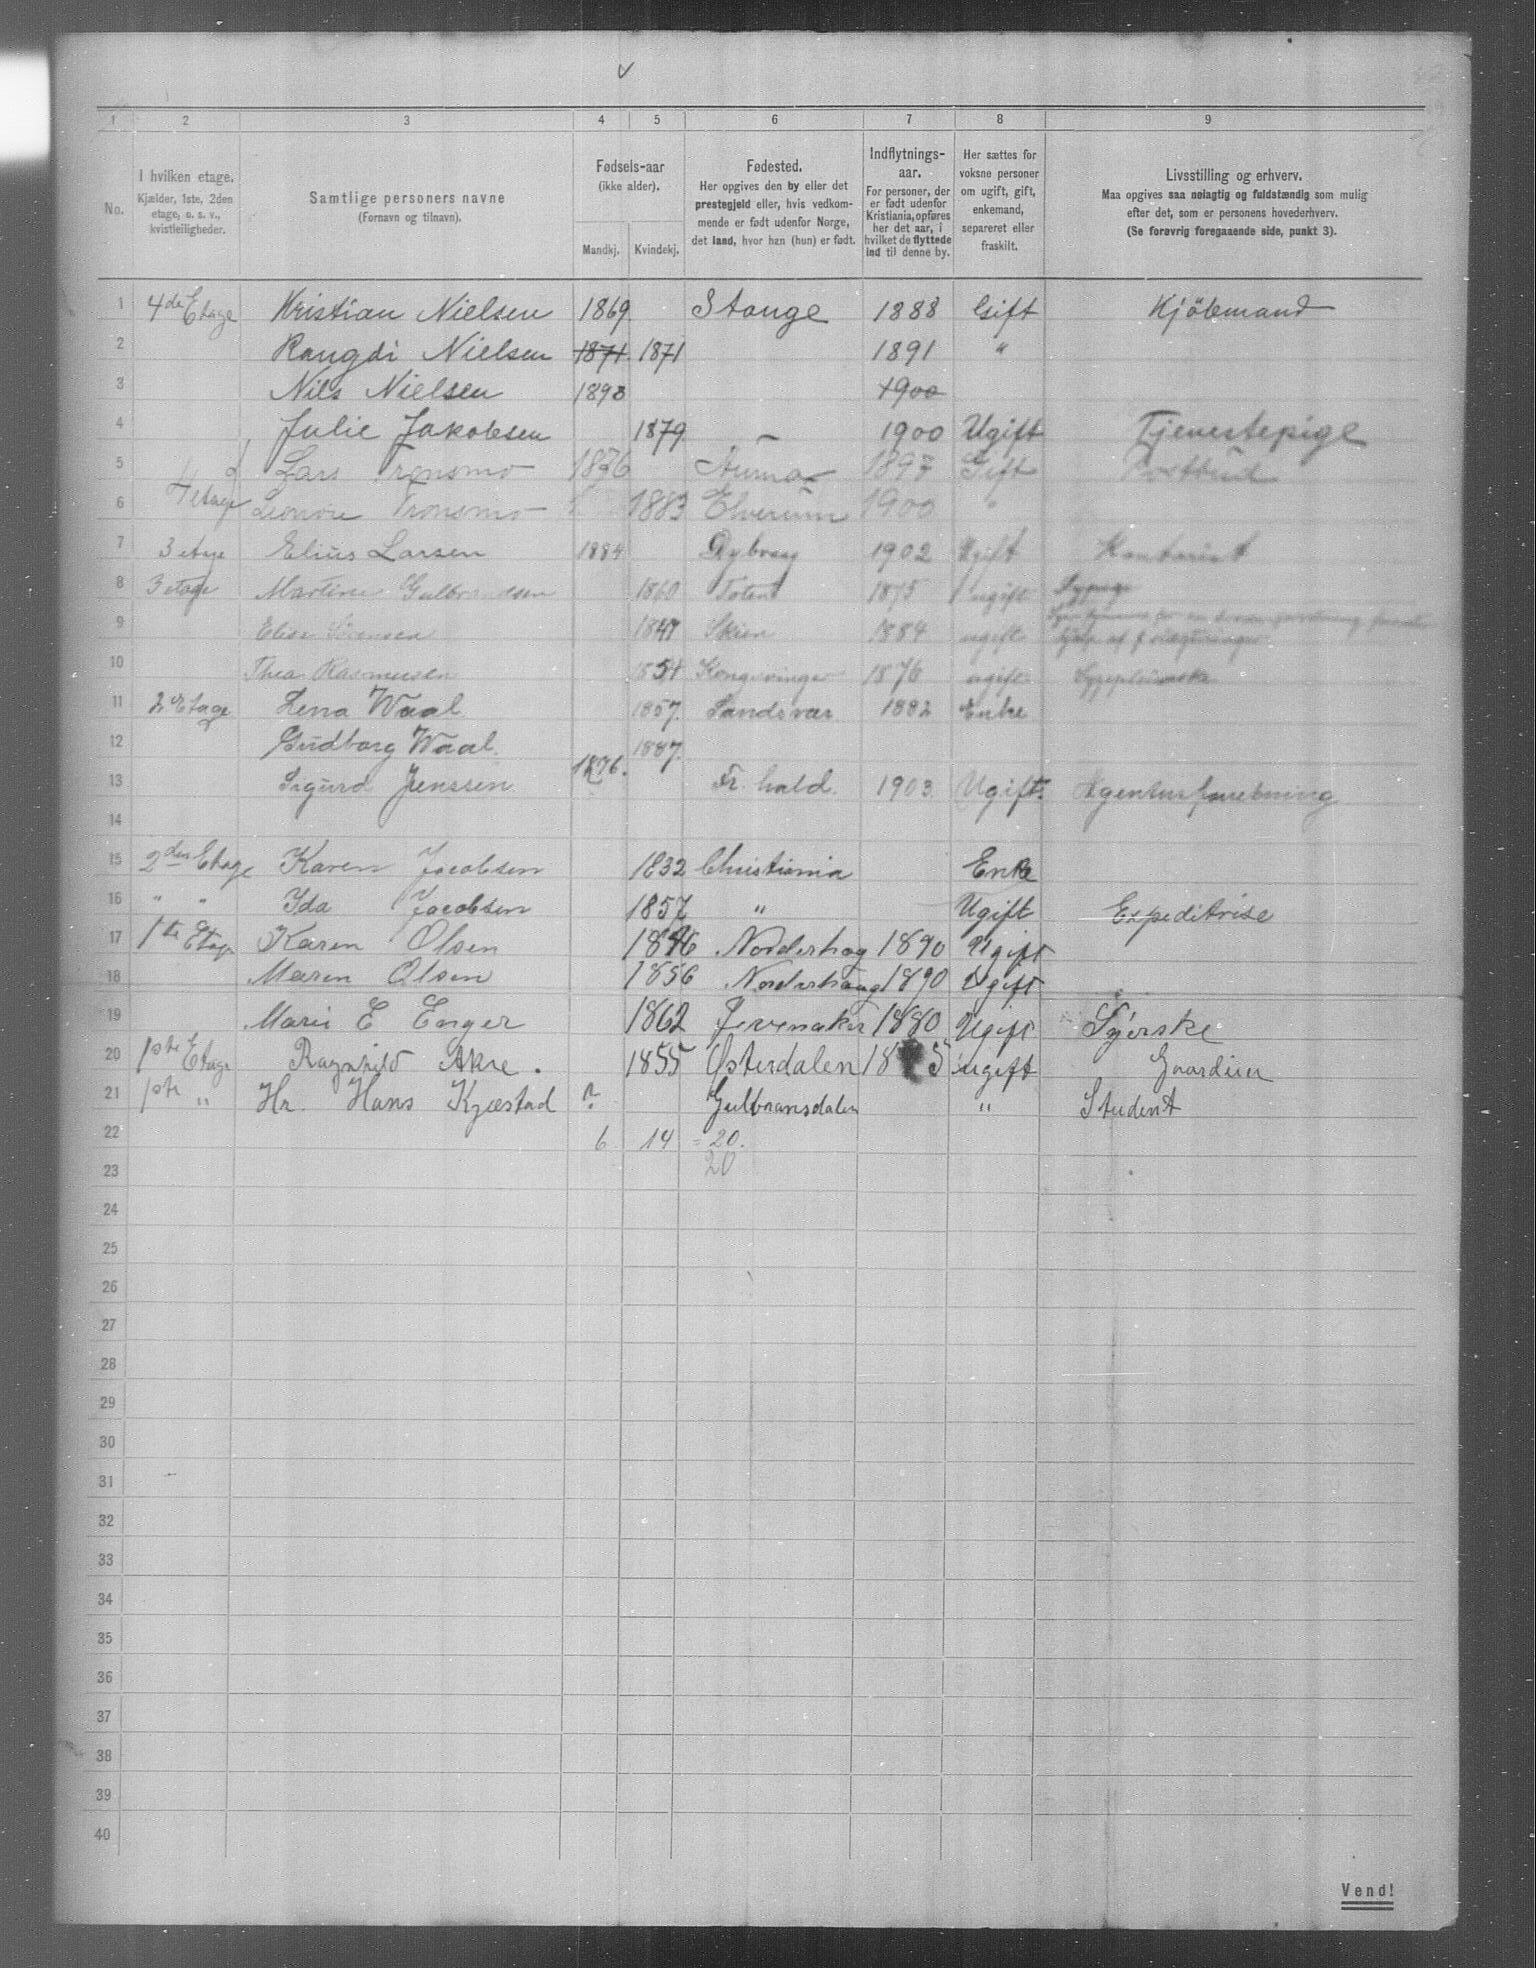 1 2 3 4 5 6 7 8 9
No.
I hvilken etage.
Kjælder, 1ste, 2den
etage, o. s. v.,
kvistleiligheder.
Samtlige personers navne
(Fornavn og tilnavn).
Fødsels-aar
(ikke alder).
Mandkj. Kvindekj.
Fødested.
Her opgives den by eller det
prestegjeld eller, hvis vedkom-
mende er født udenfor Norge,
det land, hvor han (hun) er født.
Indflytnings-
aar.
For personer, der
er født udenfor
Kristiania, opføres
her det aar, i
hvilket de flyttede
ind til denne by.
Her sættes for
voksne personer
om ugift, gift,
enkemand,
separeret eller
fraskilt.
Livsstilling og erhverv.
Maa opgives saa nøiagtig og fuldstændig som mulig
efter det, som er personens hovederhverv.
(Se forøvrig foregaaende side, punkt 3).
1 4de Etage Kristian Nielsen 1869 Stange 1888 Gift Kjöbmand
2 Rangdi Nielsen 1871 1871 1891 "
3 Nils Nielsen 1893 1900
4 Julie Jakobsen 1879 — 1900 Ugift Tjenestepige
5 Lars Tronsmo 1876 1897 Gift Postbud
6 1 etage Leonore Tronsmo 1883 Elverum 1900 "
7 3 etage Elius Larsen 1884 Dybvaag 1902 Ugift Kontorist
8 3 etage Martine Gulbrandsen 1860 Toten 1875 ugift Sypige
9 Elise Sørensen Skien 1884 ugift
10 Thea Rasmussen Kongsvinger 1876 ugift
11 2 Etage Lena Waal 1857. Sandsvær 1882 Enke
12 Gudborg Waal. 1887.
13 Sigurd Jenssen 1876. Fr. hald. 1903. Ugift. Agenturforretning
14
15 2den Etage Karen Jacobsen 1832 Christiania Enke
16 " " Ida Jacobsen 1857 " Ugift Expeditrise
17 1ste Etage Karen Olsen Norderhog 1890 Ugift
18 Maren Olsen 1856 Norderhaug 1890 Ugift
19 Marie E Enger 1862 Jevenaker 1880 Ugift Syerske
20 1ste Etage Ragnhild Akre. 1855 Østerdalen ugift
21 1ste " Hr. Hans Kjæstad ? Gulbransdalen " Student
22 6 14 = 20.
23 20
24
25
26
27
28
29
30
31
32
33
34
35
36
37
38
39
40
Vend!